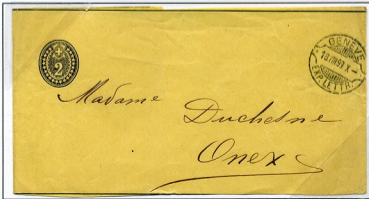 2
GENÈVE
EXP. LETTR.
Madame Duchesne
Onex